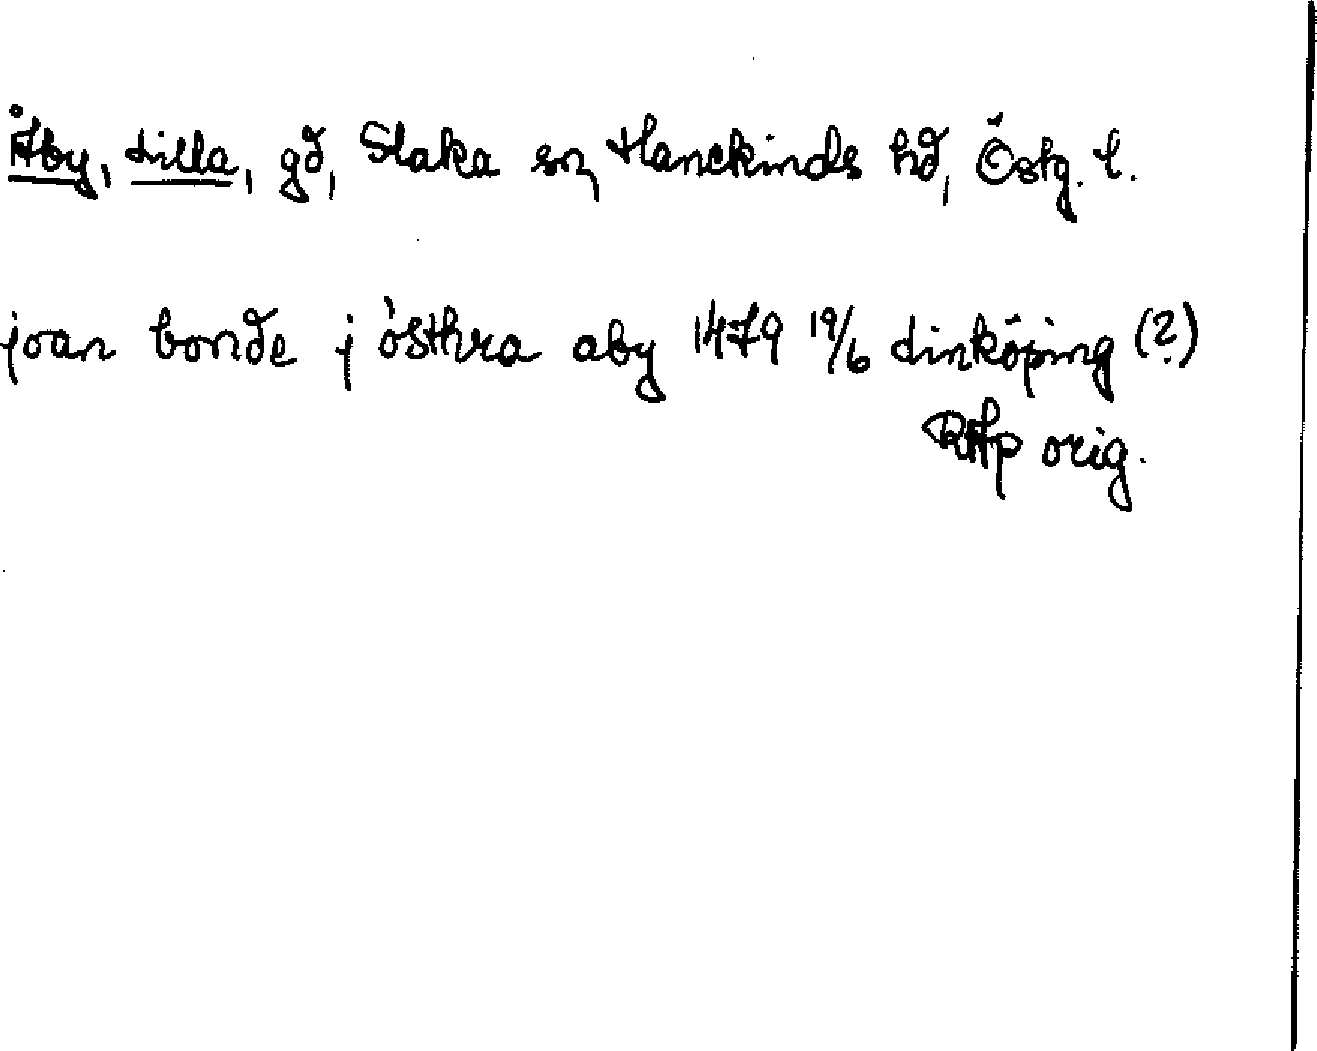 Åby, Lilla, gd, Slaka sn, Hanekinds hd, Östg. l.
joan bonde j østhra aby 1479 19/6 Linköping (?)
RAp orig.